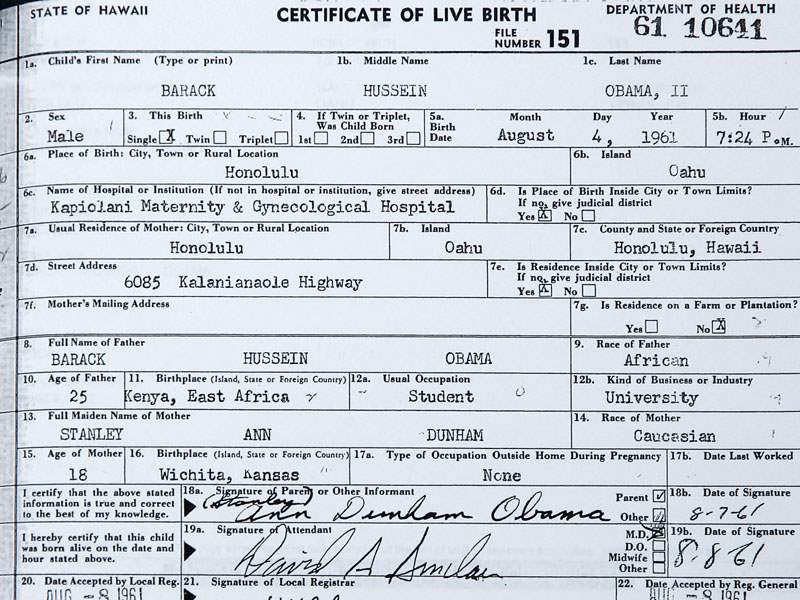 STATE OF HAWAII CERTIFICATE OF LIVE BIRTH DEPARTMENT OF HEALTH
FILE NUMBER 151 61 10641
1a. Child's First Name (Type or print) 1b. Middle Name 1c. Last Name
BARACK HUSSEIN OBAMA, II
2. Sex 3. This Birth 4. If Twin or Triplet, Was Child Born 5a. Birth Date Month Day Year 5b. Hour
Male Single X Twin Triplet 1st 2nd 3rd August 4, 1961 7:24 P.M.
6a. Place of Birth: City, Town or Rural Location 6b. Island
Honolulu Oahu
6c. Name of Hospital or Institution (If not in hospital or institution, give street address) 6d. Is Place of Birth Inside City or Town Limits? If no, give judicial district
Kapiolani Maternity & Gynecological Hospital Yes X No
7a. Usual Residence of Mother: City, Town or Rural Location 7b. Island 7c. County and State or Foreign Country
Honolulu Oahu Honolulu, Hawaii
7d. Street Address 7e. Is Residence Inside City or Town Limits? If no, give judicial district
6085 Kalanianaole Highway Yes X No
7f. Mother's Mailing Address 7g. Is Residence on a Farm or Plantation?
Yes No X
8. Full Name of Father 9. Race of Father
BARACK HUSSEIN OBAMA African
10. Age of Father 11. Birthplace (Island, State or Foreign Country) 12a. Usual Occupation 12b. Kind of Business or Industry
25 Kenya, East Africa Student University
13. Full Maiden Name of Mother 14. Race of Mother
STANLEY ANN DUNHAM Caucasian
15. Age of Mother 16. Birthplace (Island, State or Foreign Country) 17a. Type of Occupation Outside Home During Pregnancy 17b. Date Last Worked
18 Wichita, Kansas None
I certify that the above stated information is true and correct to the best of my knowledge. 18a. Signature of Parent or Other Informant Parent Other 18b. Date of Signature
(Stanley) Ann Dunham Obama 8-7-61
I hereby certify that this child was born alive on the date and hour stated above. 19a. Signature of Attendant M.D. D.O. Midwife Other 19b. Date of Signature
David A Sinclair 8-8-61
20. Date Accepted by Local Reg. 21. Signature of Local Registrar 22. Date Accepted by Reg. General
AUG -8 1961